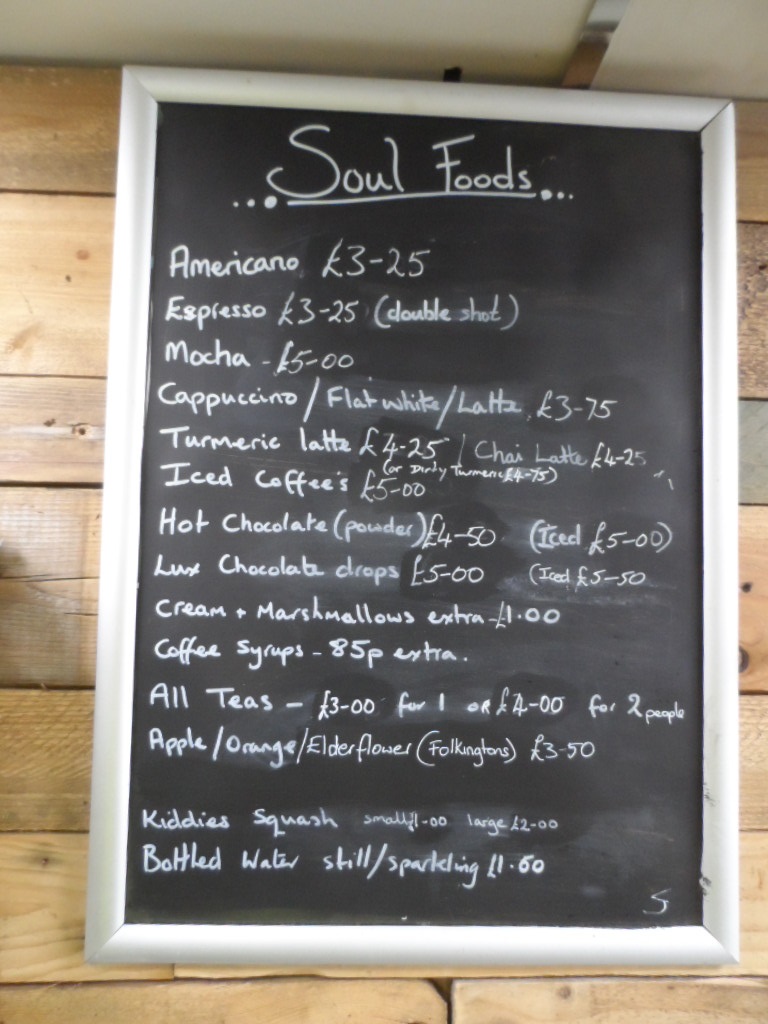 ...Soul Foods...
Americano £3-25
Espresso £3-25 (double shot)
Mocha - £5-00
Cappuccino/Flat white/Latte £3-75
Turmeric latte £4-25 | Chai Latte £4-25
(or Dirty Turmeric £4-75)
Iced Coffee's £5-00
Hot Chocolate (powder) £4-50 (Iced £5-00)
Lux Chocolate drops £5-00 (Iced £5-50
Cream + Marshmallows extra - £1.00
Coffee Syrups - 85p extra.
All Teas - £3-00 for 1 or £4-00 for 2 people
Apple/Orange/Elderflower (Folkingtons) £3-50
Kiddies Squash small £1-00 large £2-00
Bottled Water still/sparkling £1.60